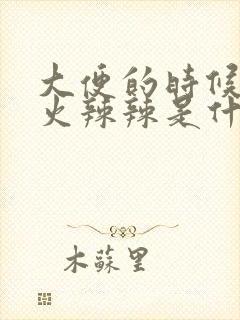 大便的時候
火辣辣是什
木蘇里